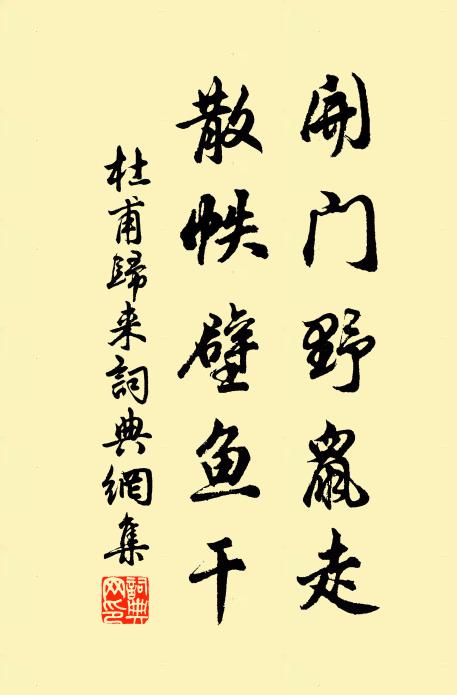 開门野鼠走
散帙壁鱼干
杜甫歸来詞典網集
詞典网印